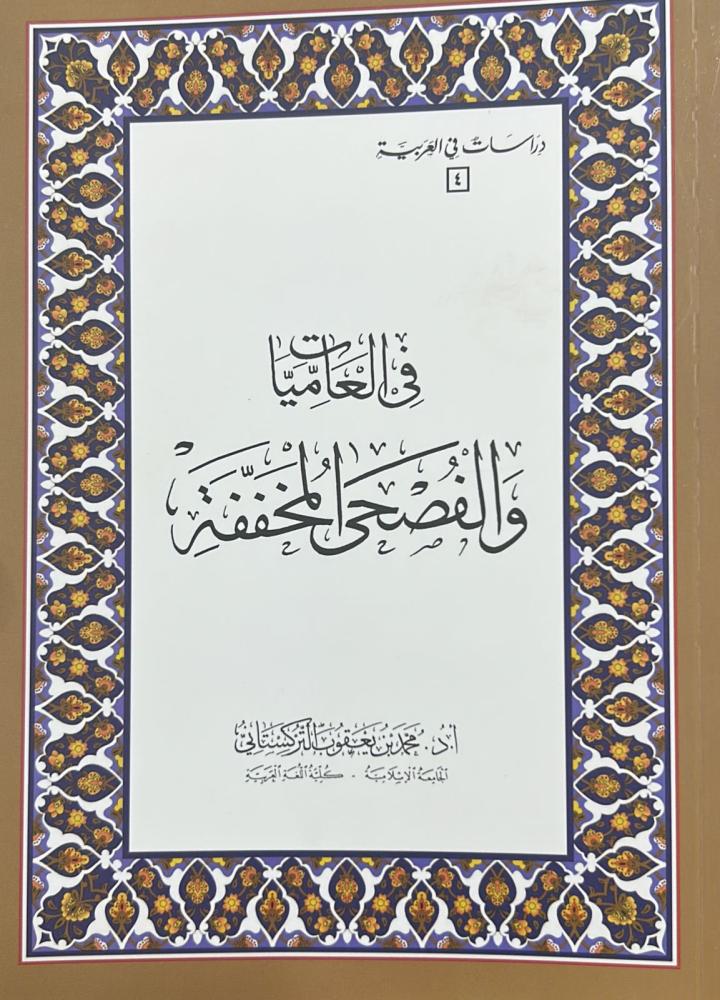 دراسات في العربية
٤
في العاميات
والفصحى المخففة
أ.د. محمد بن يعقوب التركستاني
الجامعة الإسلامية - كلية اللغة العربية